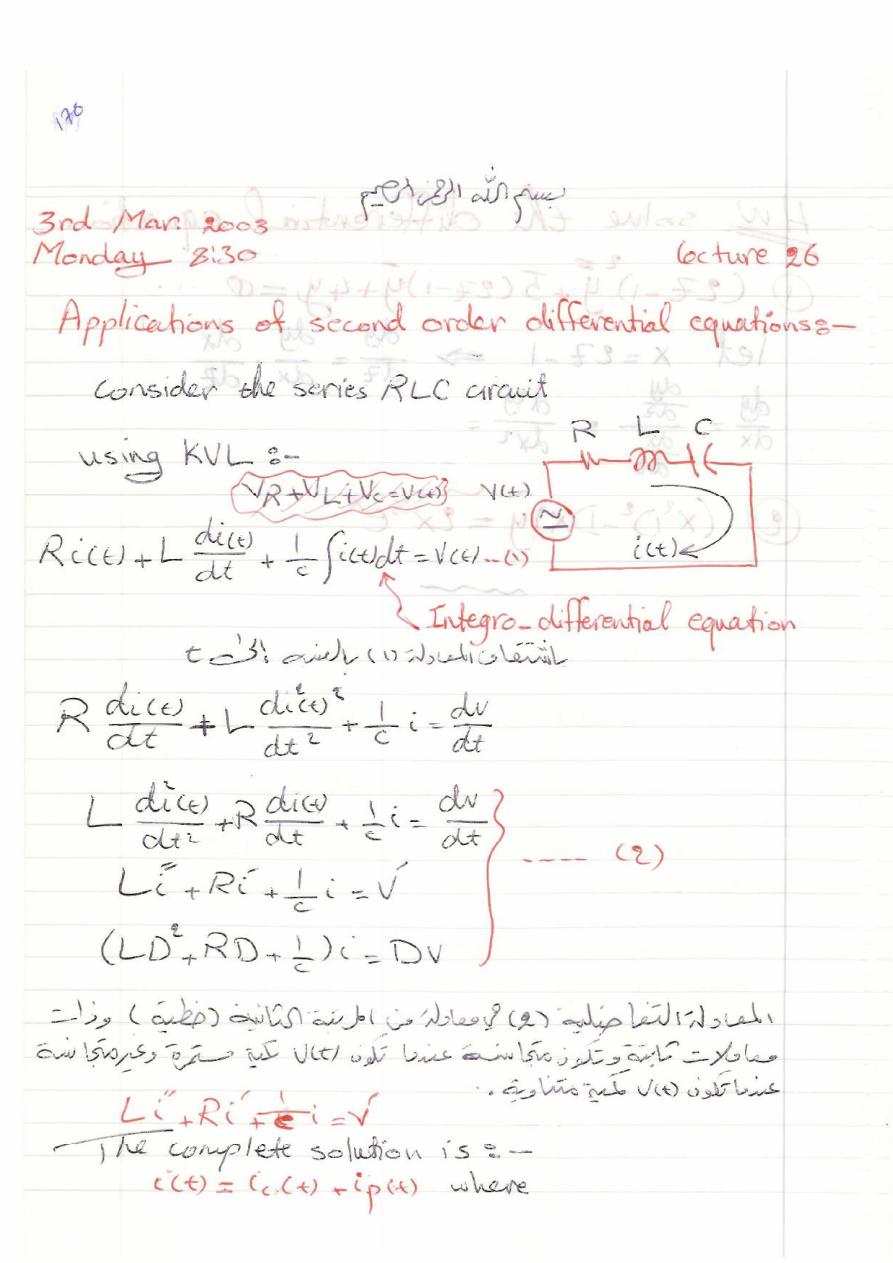 170
بسم الله الرحمن الرحيم
3rd Mar. 2003
Monday 8:30
Lecture 26
Applications of second order differential equations:-
Consider the series RLC circuit
using KVL :-
R L C
VR+VL+Vc=V(t)
V(t)
Ri(t) + L di(t)/dt + 1/c ∫i(t)dt = V(t) ---(1)
i(t)
Integro-differential equation
باشتقاق المعادلة (1) بالنسبة إلى t
R di(t)/dt + L di²(t)²/dt² + 1/c i = dv/dt
L di²(t)/dt² + R di(t)/dt + 1/c i = dv/dt
Li˝ + Ri´ + 1/c i = V´
---- (2)
(LD² + RD + 1/c)i = Dv
المعادلة التفاضلية (2) هي معادلة من المرتبة الثانية (خطية) وذات
معاملات ثابتة وتكون متجانسة عندما تكون V(t) كمية مستمرة وغير متجانسة
عندما تكون V(t) كمية متناوبة .
Li˝ + Ri´ + 1/c i = V´
The complete solution is :-
i(t) = ic(t) + ip(t) where